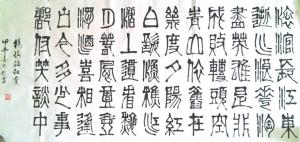 滾滾長江東
逝水浪花淘
盡英雄是非
成敗轉頭空
青山依舊在
幾度夕陽紅
白髮漁樵江
渚上慣看秋
月春風一壺
濁酒喜相逢
古今多少事
都付笑談中
甲午